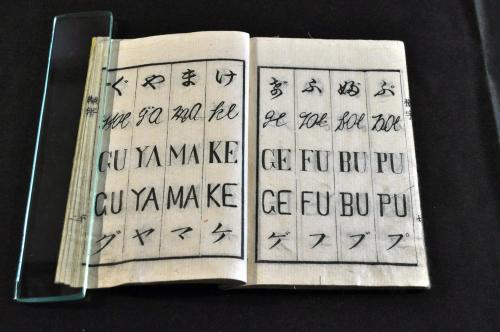 ぐ や ま け
ya ma ke
GU YA MA KE
GU YA MA KE
グ ヤ マ ケ
ふ ぶ
ge foe boe poe
GE FU BU PU
GE FU BU PU
ゲ フ ブ プ